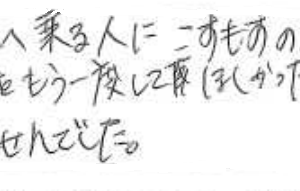 へ乗る人にこすもすの
をもう一度して頂ほしかった
せんでした。